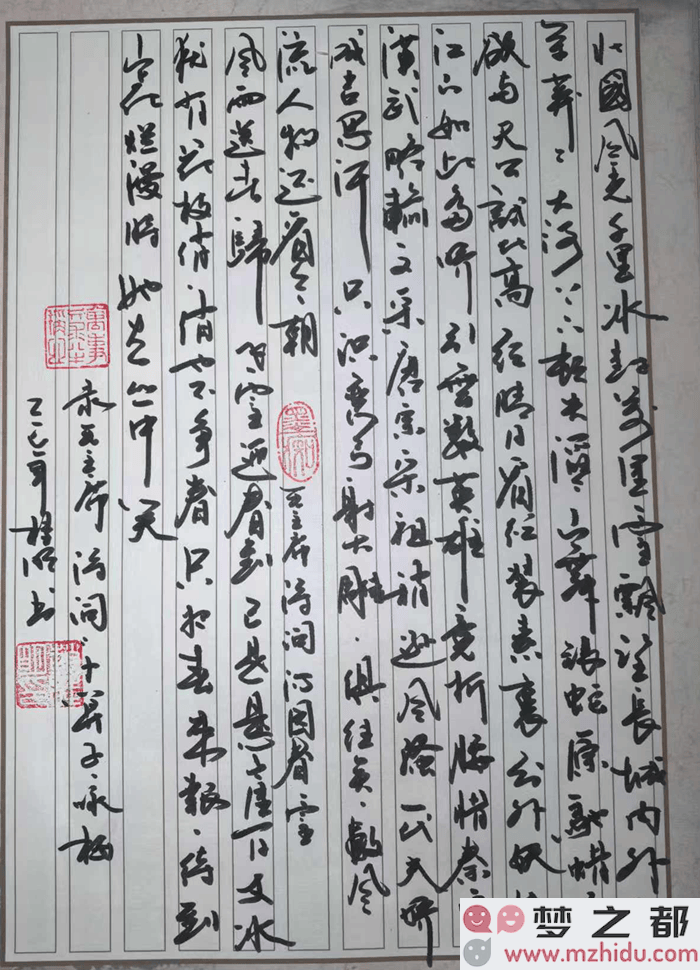 北國风光千里冰封万里雪飘望长城内外
莽莽大河上下顿失滔滔山舞银蛇原驰蜡
欲与天公试比高须晴日看红装素裹分外妖
江山如此多娇引无数英雄竞折腰惜秦
汉武略输文采唐宗宋祖稍逊风骚一代天骄
成吉思汗只识弯弓射大雕俱往矣数风
流人物还看今朝 毛主席诗词沁园春雪
风雨送春歸飞雪迎春到已是悬崖百丈冰
犹有花枝俏俏也不争春只把春来报待到
山花烂漫时她在丛中笑
录毛主席诗词卜算子咏梅
书
梦之都
www.mzhidu.com